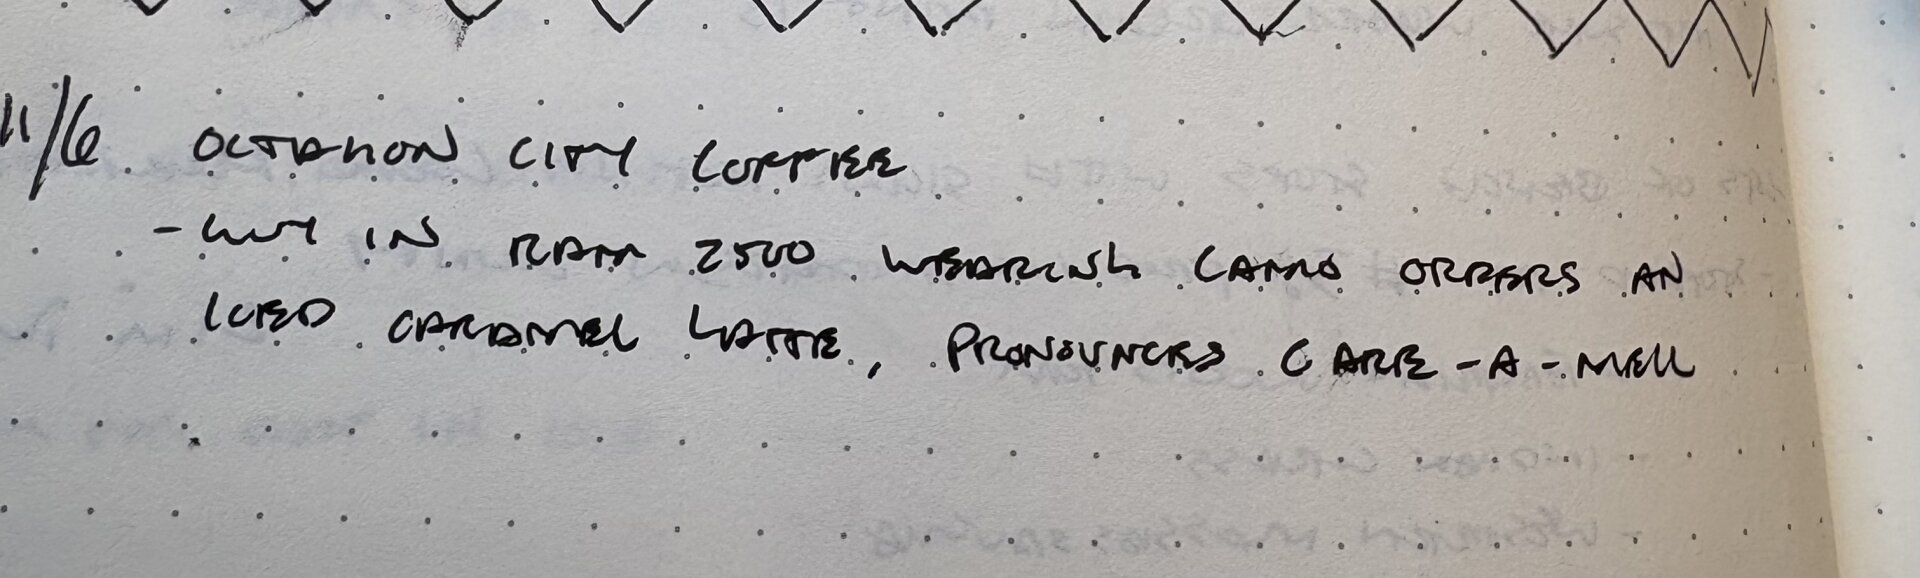 11/6 OCTAGON CITY COFFEE
- GUY IN RAM 2500 WEARING CAMO ORDERS AN
ICED CARAMEL LATTE, PRONOUNCES CARE-A-MELL